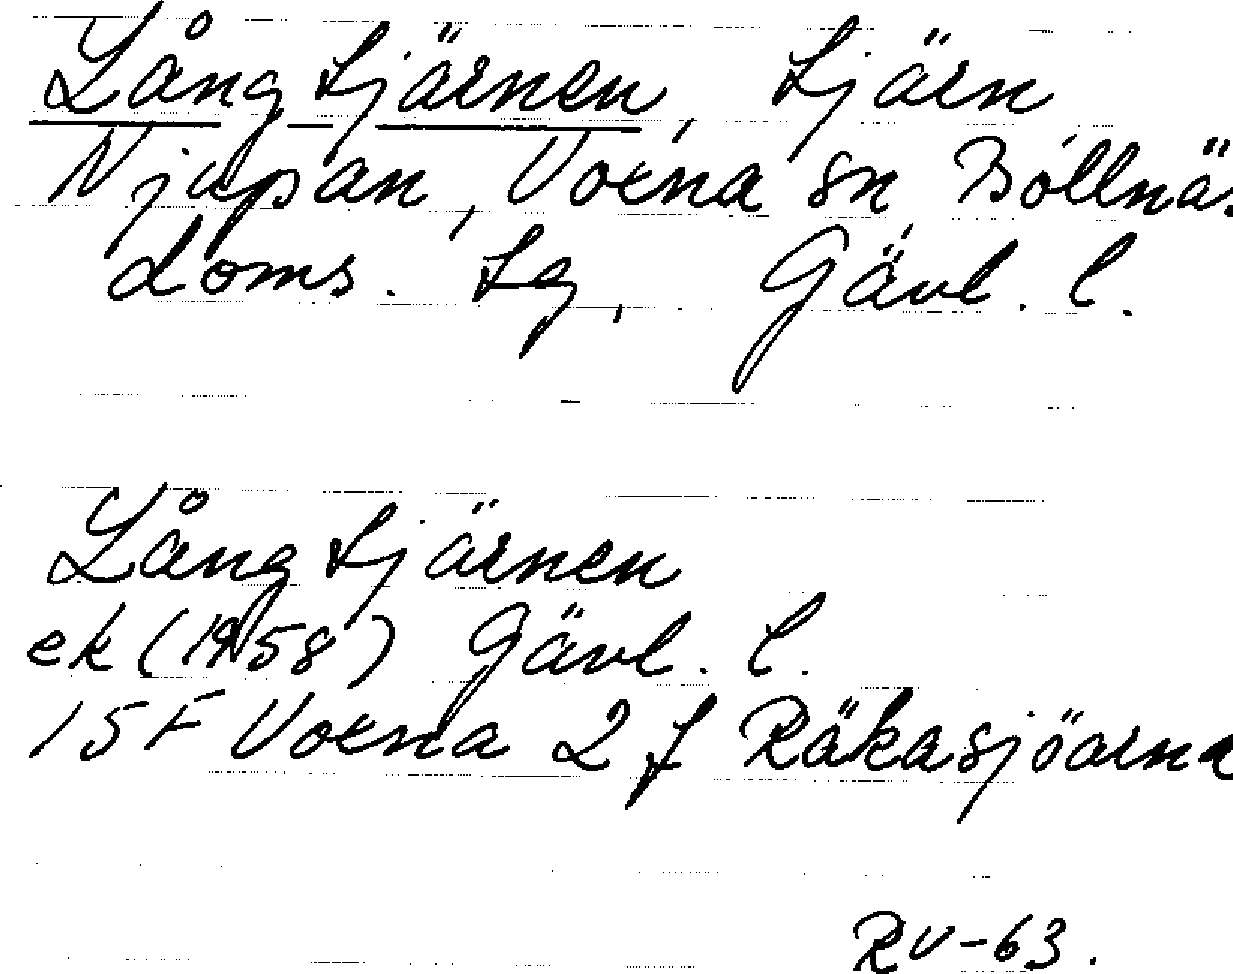 Långtjärnen, tjärn
Njupan, Voxna sn, Bollnäs
doms. tg, Gävl. l.
Långtjärnen
ek (1958) Gävl. l.
15F Voxna 2 f Räkasjöarna
RV-63.